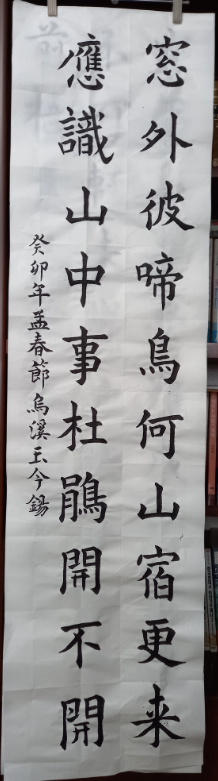 窓外彼啼鳥何山宿更来
應識山中事杜鵑開不開
癸卯年孟春節烏溪玉今鍚